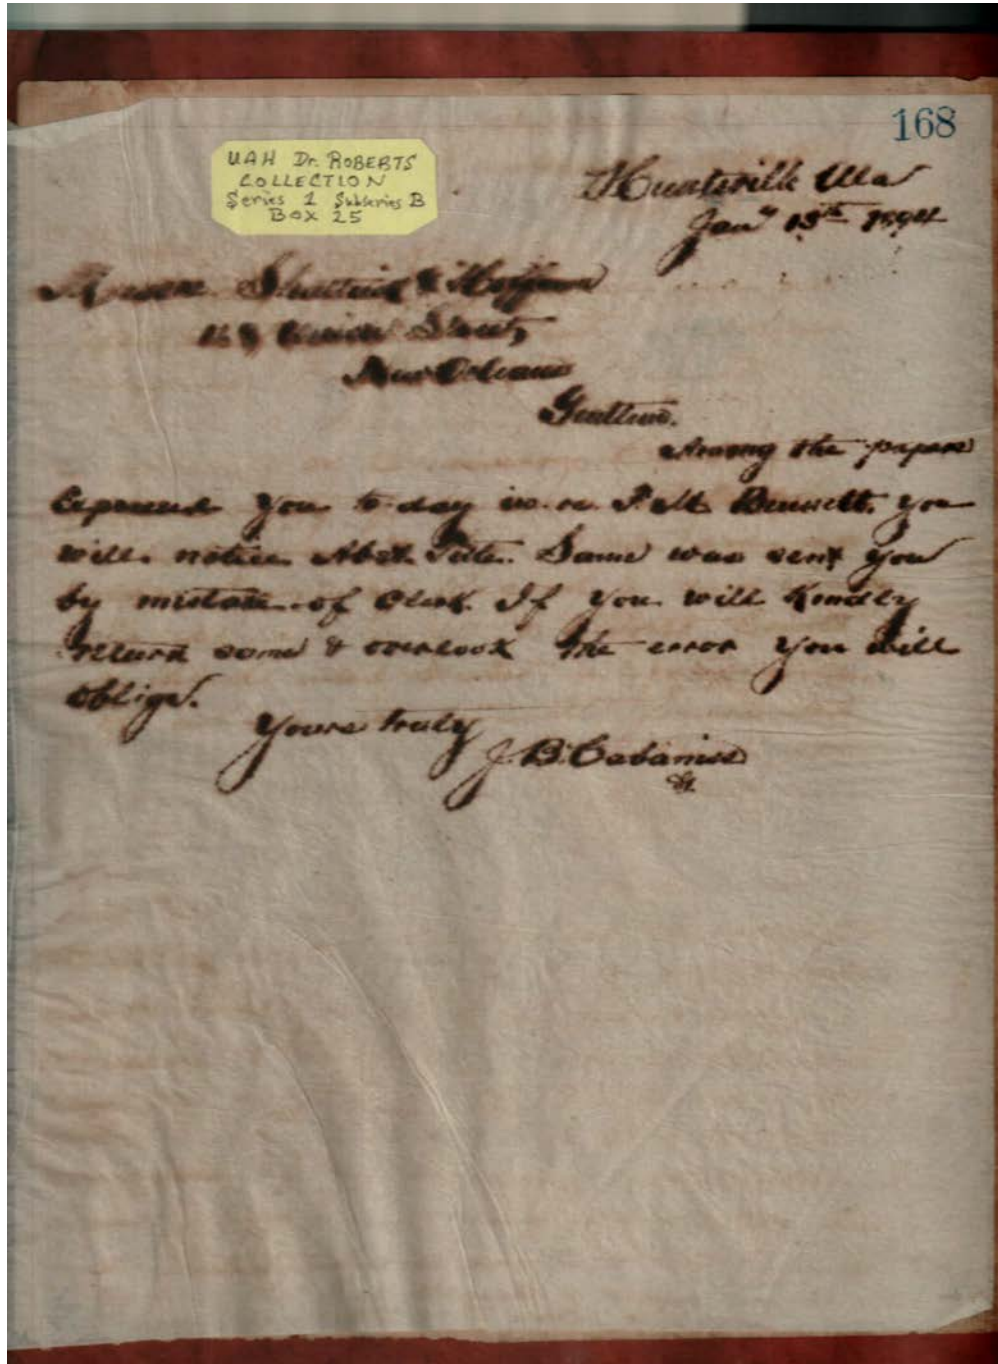 168
UAH Dr. ROBERTS
COLLECTION
Series 1 Subseries B
BOX 25
Huntsville Ala
Jany 13th 1894
& Hoffman
Union Street,
New Orleans
Gentlemen.
Among the papers
Expressed you to-day in re. Bennett. you
will notice Abst. Title. Same was sent you
by mistake of Clerk. If you will Kindly
return same & overlook the error you will
oblige.
Yours truly
J. B. Cabaniss